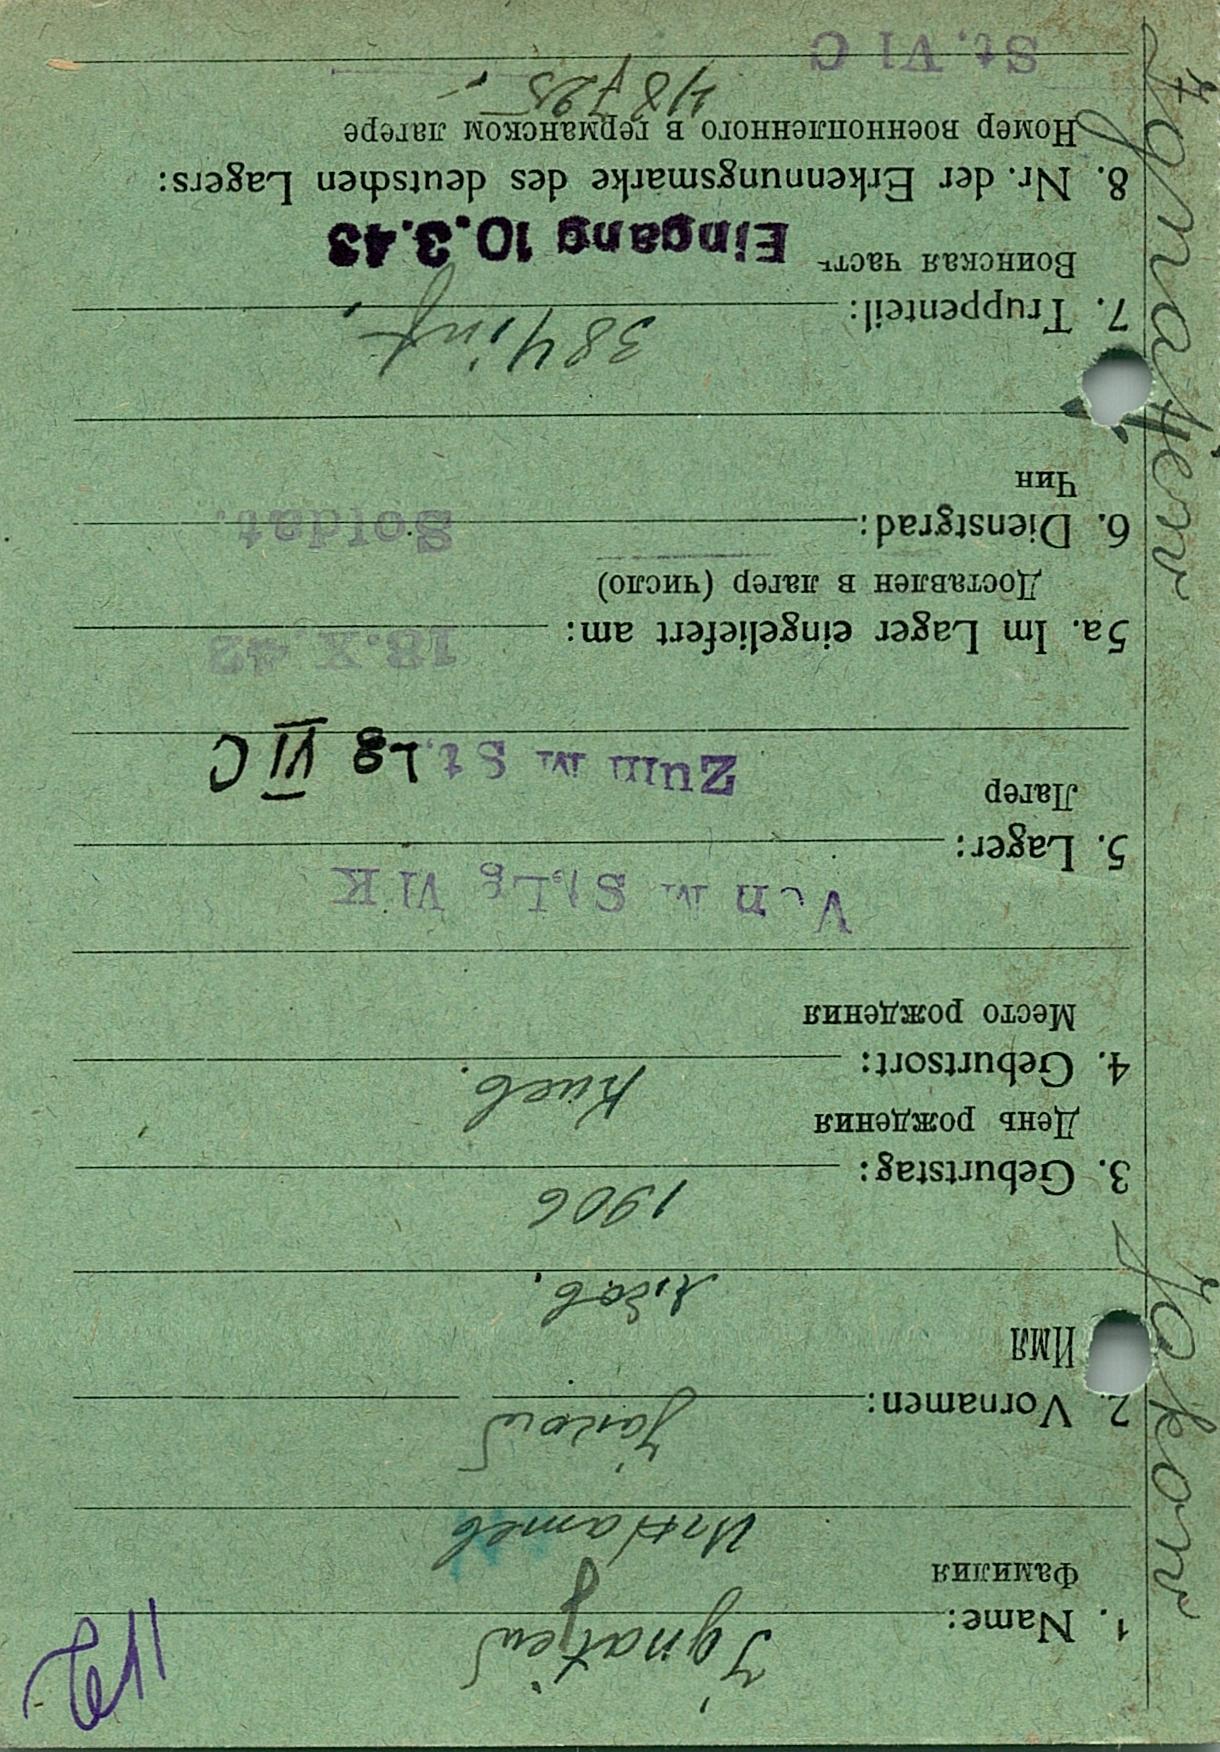 1. Name: Ignatjew
Фамилия
Игнатев
2. Vornamen: Jakow
Имя
3. Geburtstag: 1906
День рождения
4. Geburtsort: Киев.
Место рождения
Von M St.Lg VI K
5. Lager:
Лагер
Zum M St. Lg VI C
5a. Im Lager eingeliefert am: 18.X.42
Доставлен в лагер (число)
6. Dienstgrad: Soldat.
Чин
384 inf.
7. Truppenteil:
Воинская часть
Eingang 10.3.43
8. Nr. der Erkennungsmarke des deutschen Lagers:
Номер военнопленного в германском лагере
48725
St. VI C
Jakow Ignatjew